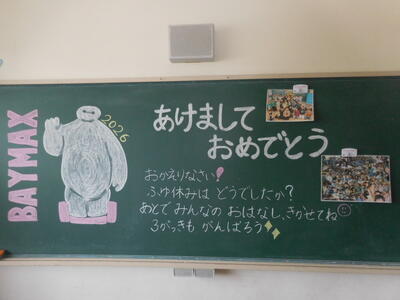 BAYMAX
2026
あけまして
おめでとう
おかえりなさい!
ふゆ休みは どうでしたか?
あとで みんなの おはなし、きかせてね
3がっきも がんばろう